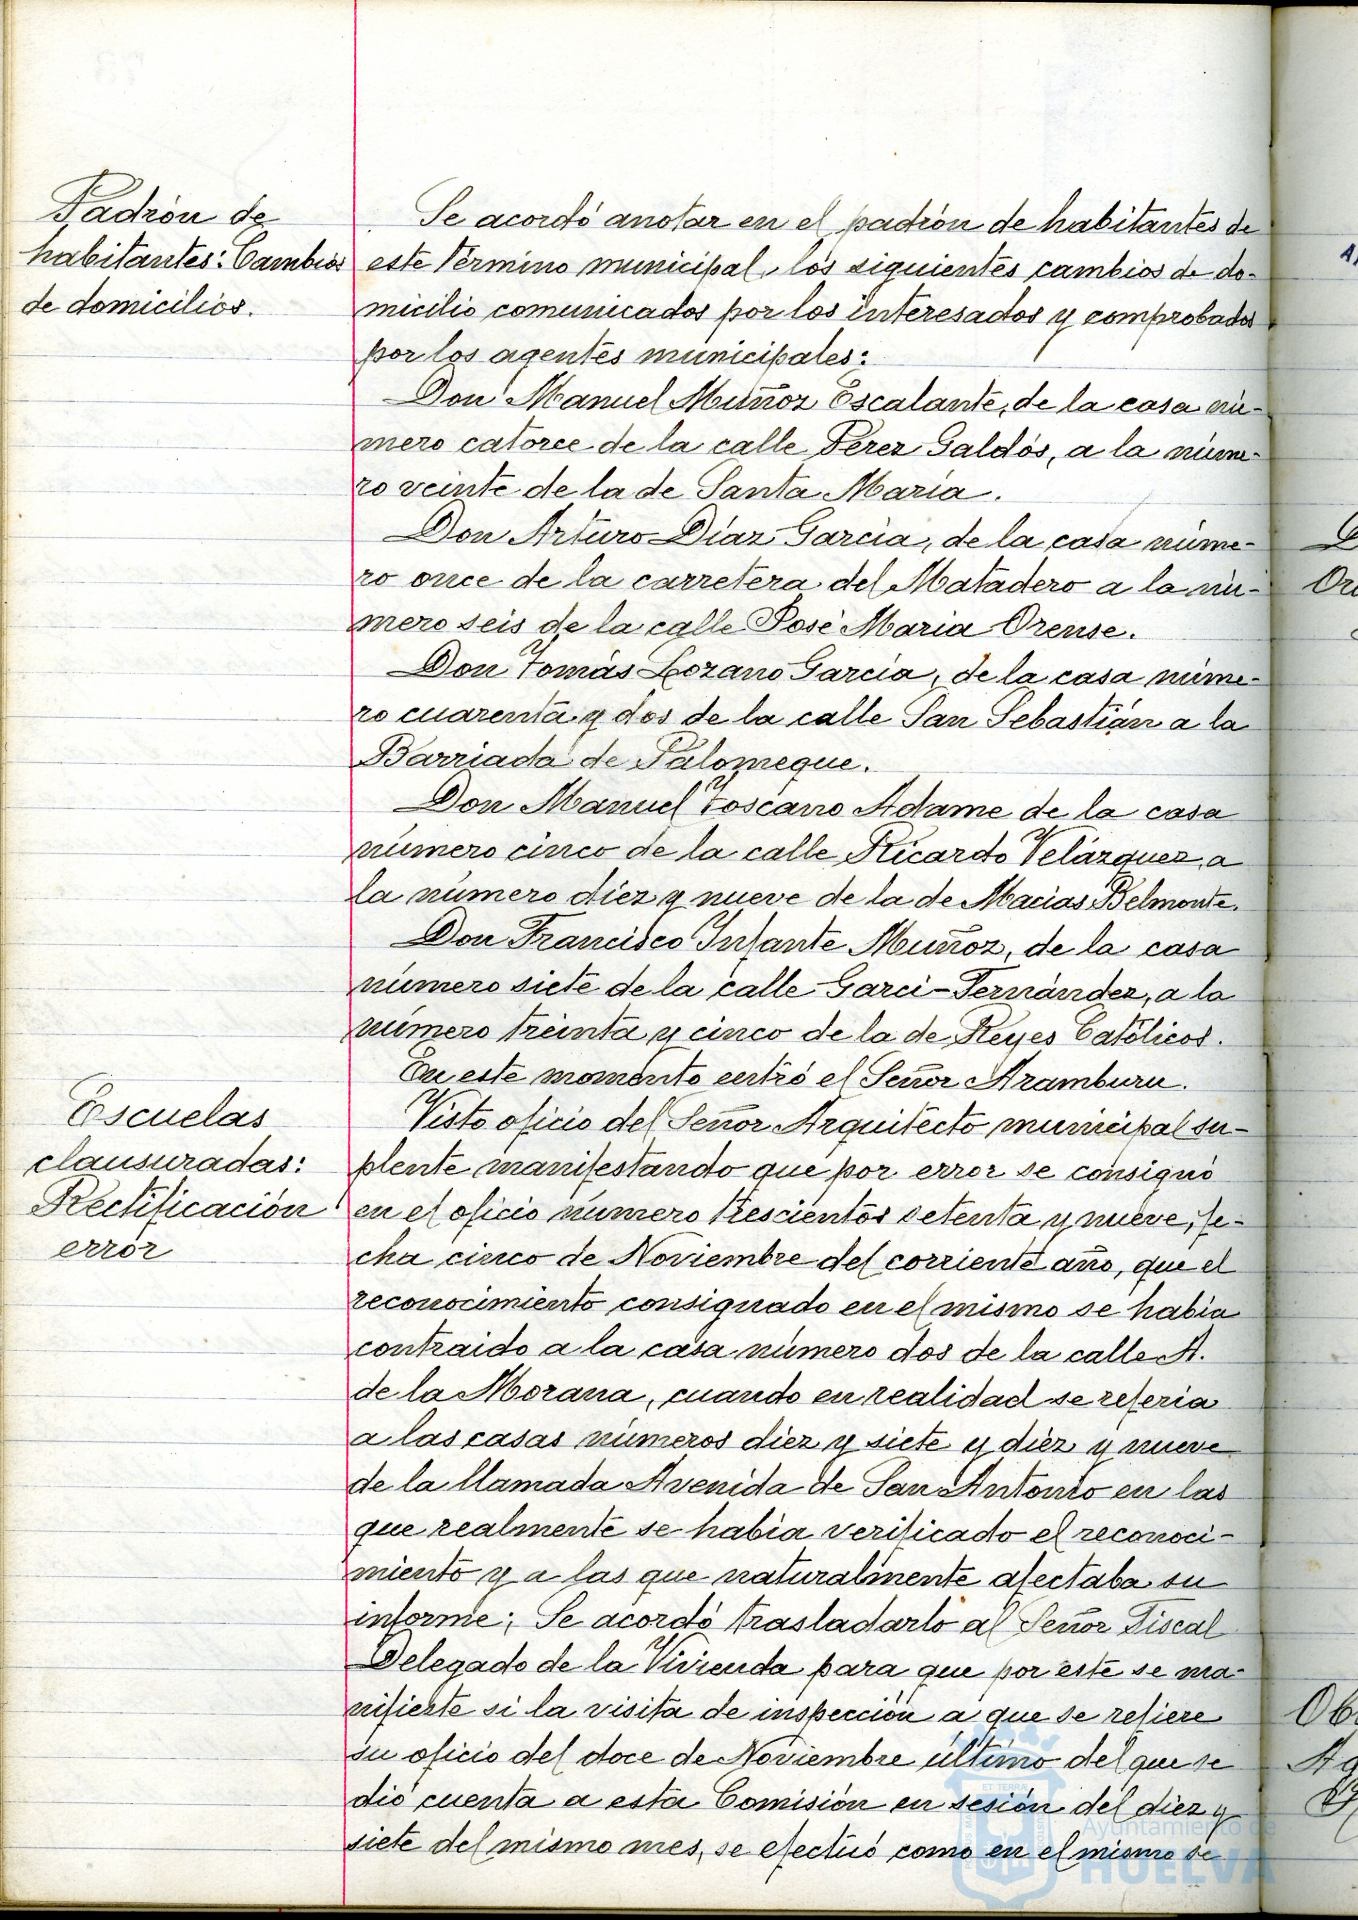 Padrón de
habitantes: Cambios
de domicilios.
Se acordó anotar en el padrón de habitantes de
este término municipal, los siguientes cambios de do-
micilio comunicados por los interesados y comprobados
por los agentes municipales:
Don Manuel Muñoz Escalante, de la casa nú-
mero catorce de la calle Pérez Galdós, a la núme-
ro veinte de la de Santa María.
Don Arturo Díaz García, de la casa núme-
ro once de la carretera del Matadero a la nú-
mero seis de la calle José María Orense.
Don Tomás Lozano García, de la casa núme-
ro cuarenta y dos de la calle San Sebastián a la
Barriada de Palomeque.
Don Manuel Toscano Adame de la casa
número cinco de la calle Ricardo Velázquez, a
la número diez y nueve de la de Macías Belmonte.
Don Francisco Infante Muñoz, de la casa
número siete de la calle Garci-Fernández, a la
número treinta y cinco de la de Reyes Católicos.
En este momento entró el Señor Aramburu.
Escuelas
clausuradas:
Rectificación
error
Visto oficio del Señor Arquitecto municipal su-
plente manifestando que por error se consignó
en el oficio número trescientos setenta y nueve, fe-
cha cinco de Noviembre del corriente año, que el
reconocimiento consignado en el mismo se había
contraido a la casa número dos de la calle A.
de la Morana, cuando en realidad se refería
a las casas números diez y siete y diez y nueve
de la llamada Avenida de San Antonio en las
que realmente se había verificado el reconoci-
miento y a las que naturalmente afectaba su
informe; Se acordó trasladarlo al Señor Fiscal
Delegado de la Vivienda para que por este se ma-
nifieste si la visita de inspección a que se refiere
su oficio del doce de Noviembre último del que se
dió cuenta a esta Comisión en sesión del diez y
siete del mismo mes, se efectuó como en el mismo se
Ayuntamiento de
HUELVA